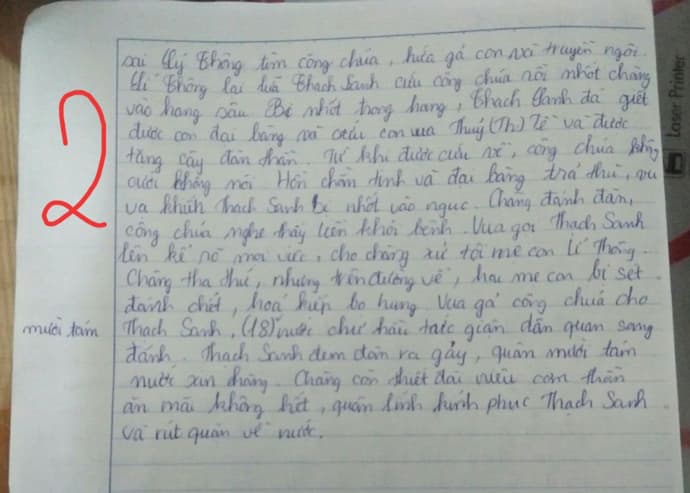 2
sai Lý Thông tìm công chúa, hứa gả con và truyền ngôi.
Lí Thông lại lừa Thạch Sanh cứu công chúa rồi nhốt chàng
vào hang sâu. Bị nhốt trong hang, Thạch Sanh đã giết
được con đại bàng và cứu con vua Thuỷ (Th) Tề và được
tặng cây đàn thần. Từ khi được cứu về, công chúa không
cười không nói. Hồn chằn tinh và đại bàng trả thù, vu
vạ khiến Thạch Sanh bị nhốt vào ngục. Chàng đánh đàn,
công chúa nghe thấy liền khỏi bệnh. Vua gọi Thạch Sanh
lên kể rõ mọi việc, cho chàng xử tội mẹ con Lí Thông.
Chàng tha thứ, nhưng trên đường về, hai mẹ con bị sét
đánh chết, hoá kiếp bọ hung. Vua gả công chúa cho
mười tám Thạch Sanh, (18) nước chư hầu tức giận dẫn quân sang
đánh. Thạch Sanh đem đàn ra gảy, quân mười tám
nước xin hàng. Chàng còn thiết đãi niêu cơm thần
ăn mãi không hết, quân lính kính phục Thạch Sanh
và rút quân về nước.
Laser Printer